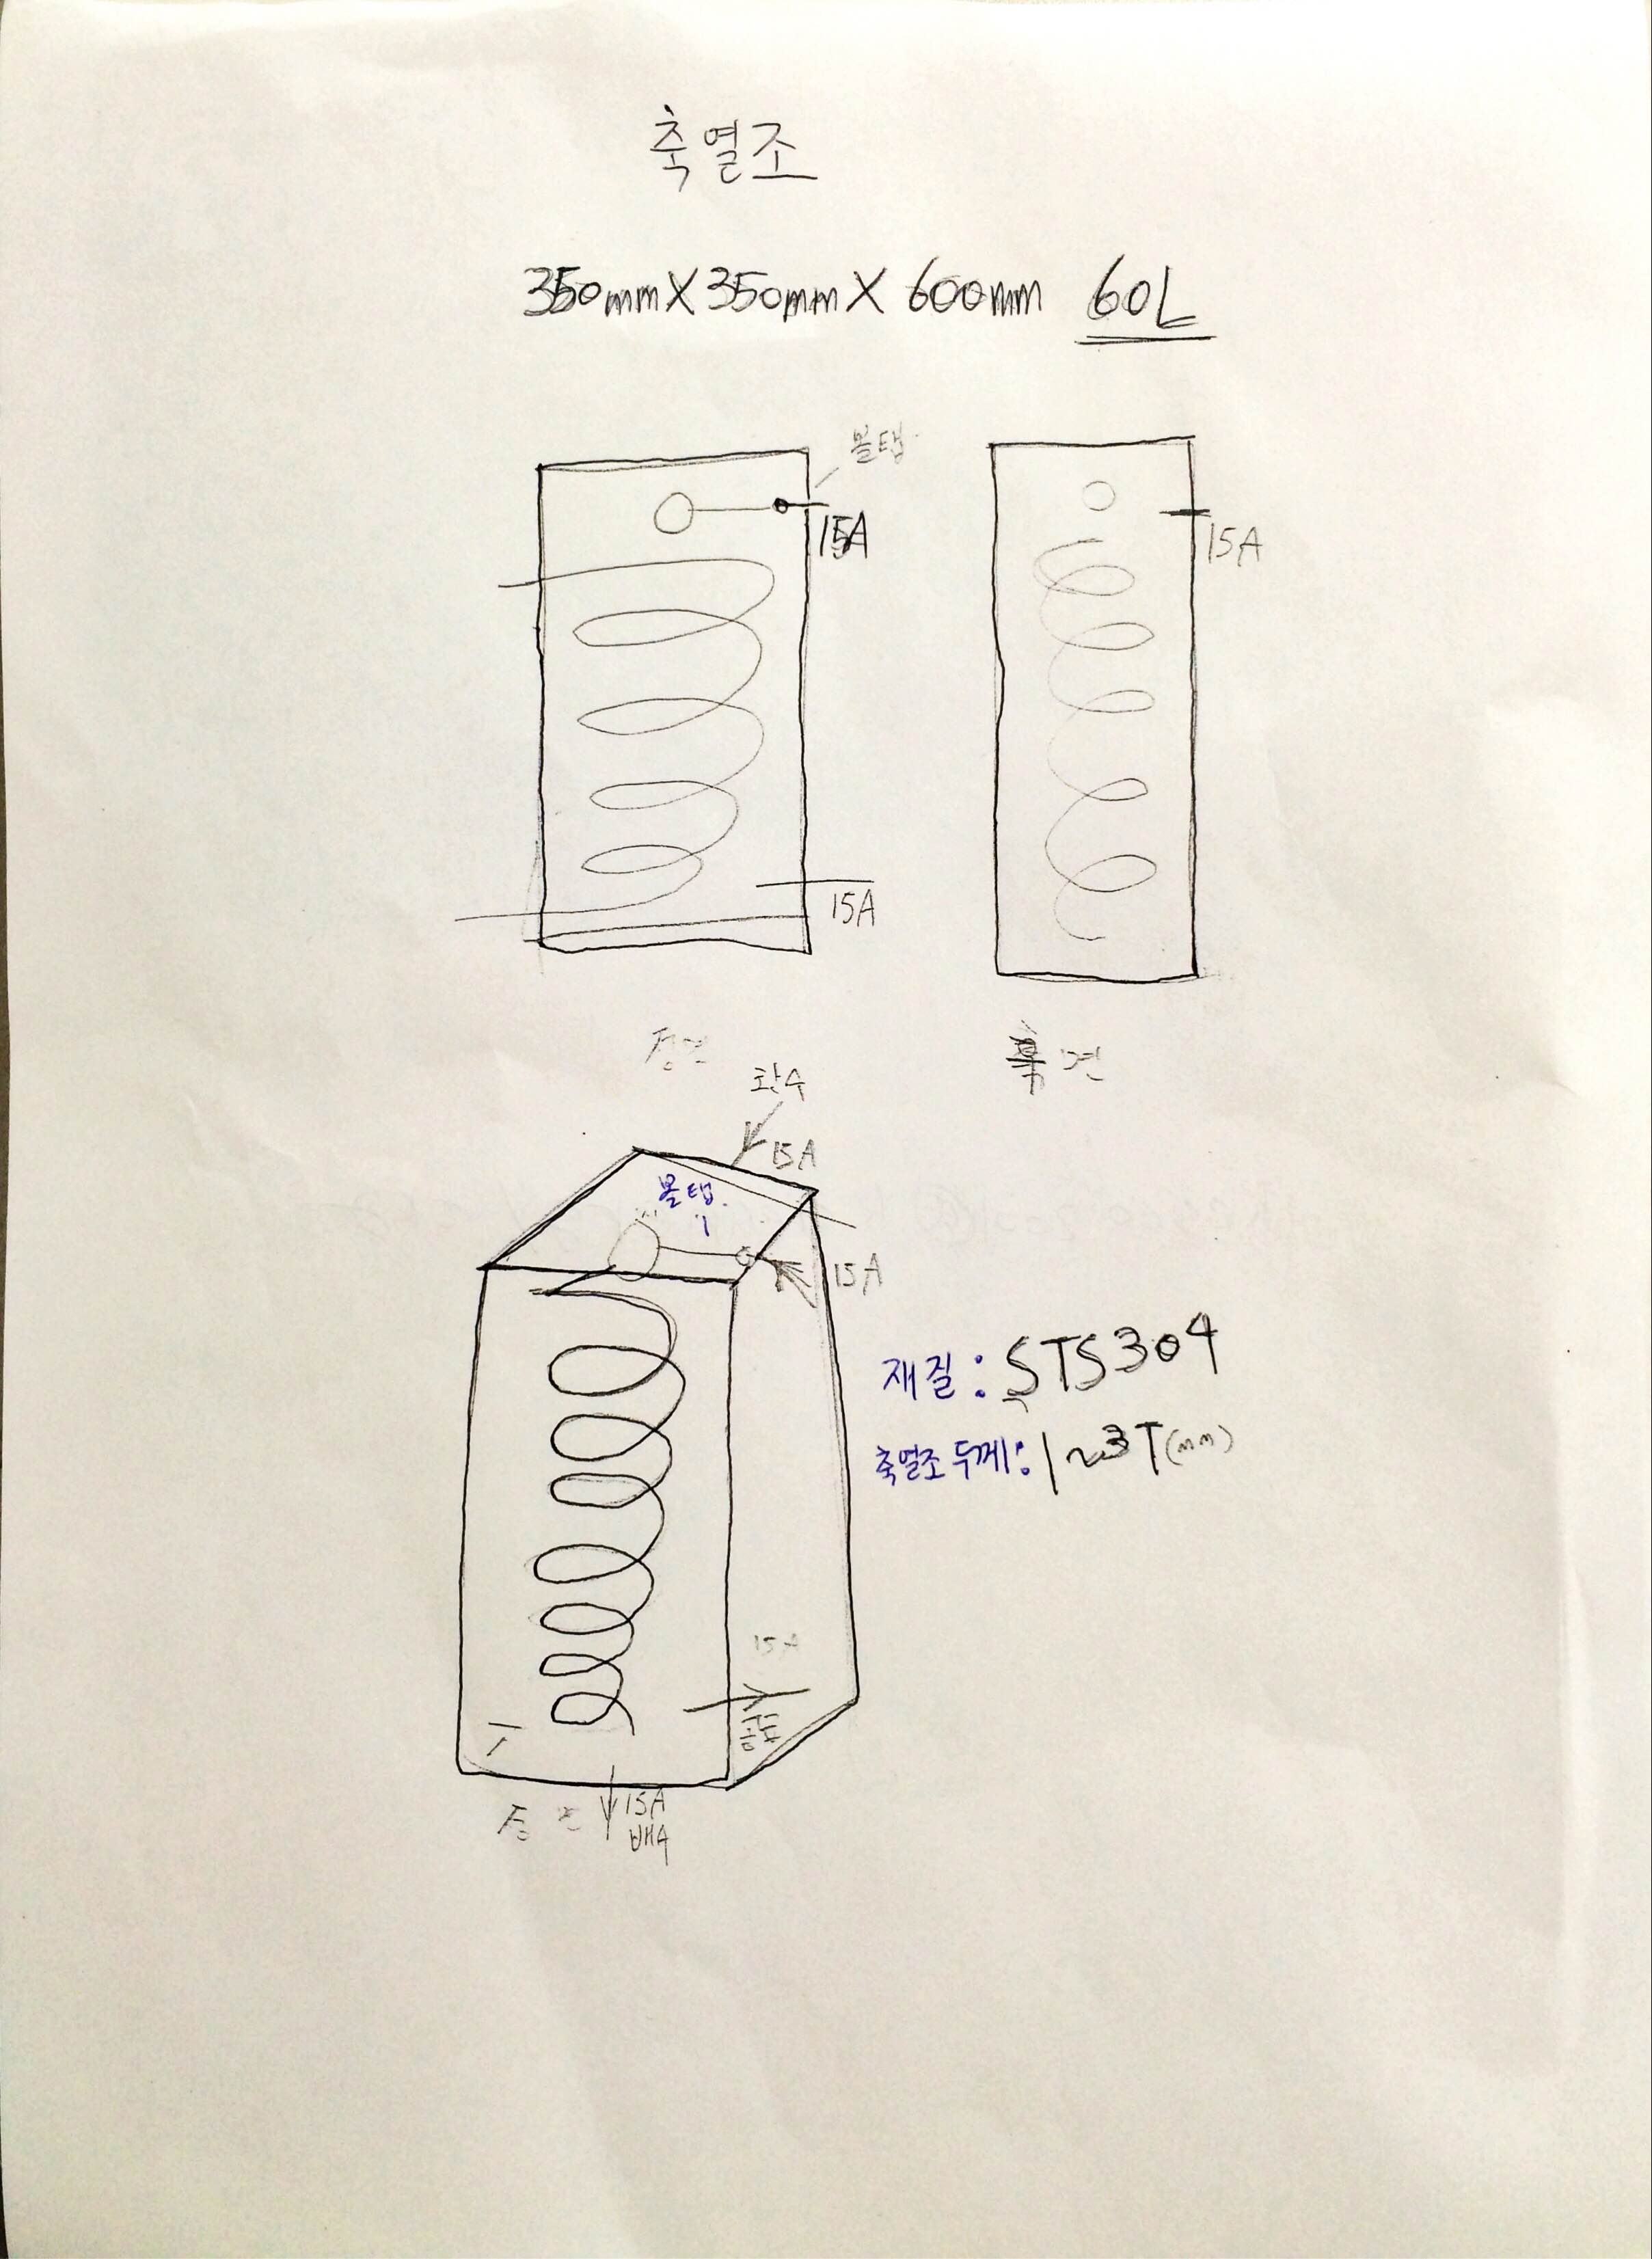 축열조
350mm X 350mm X 600mm 60L
볼탭
15A
15A
15A
정면
측면
환수
15A
볼탭
15A
재질: STS304
축열조 두께: 1~3T(mm)
15A
정면
15A
배수